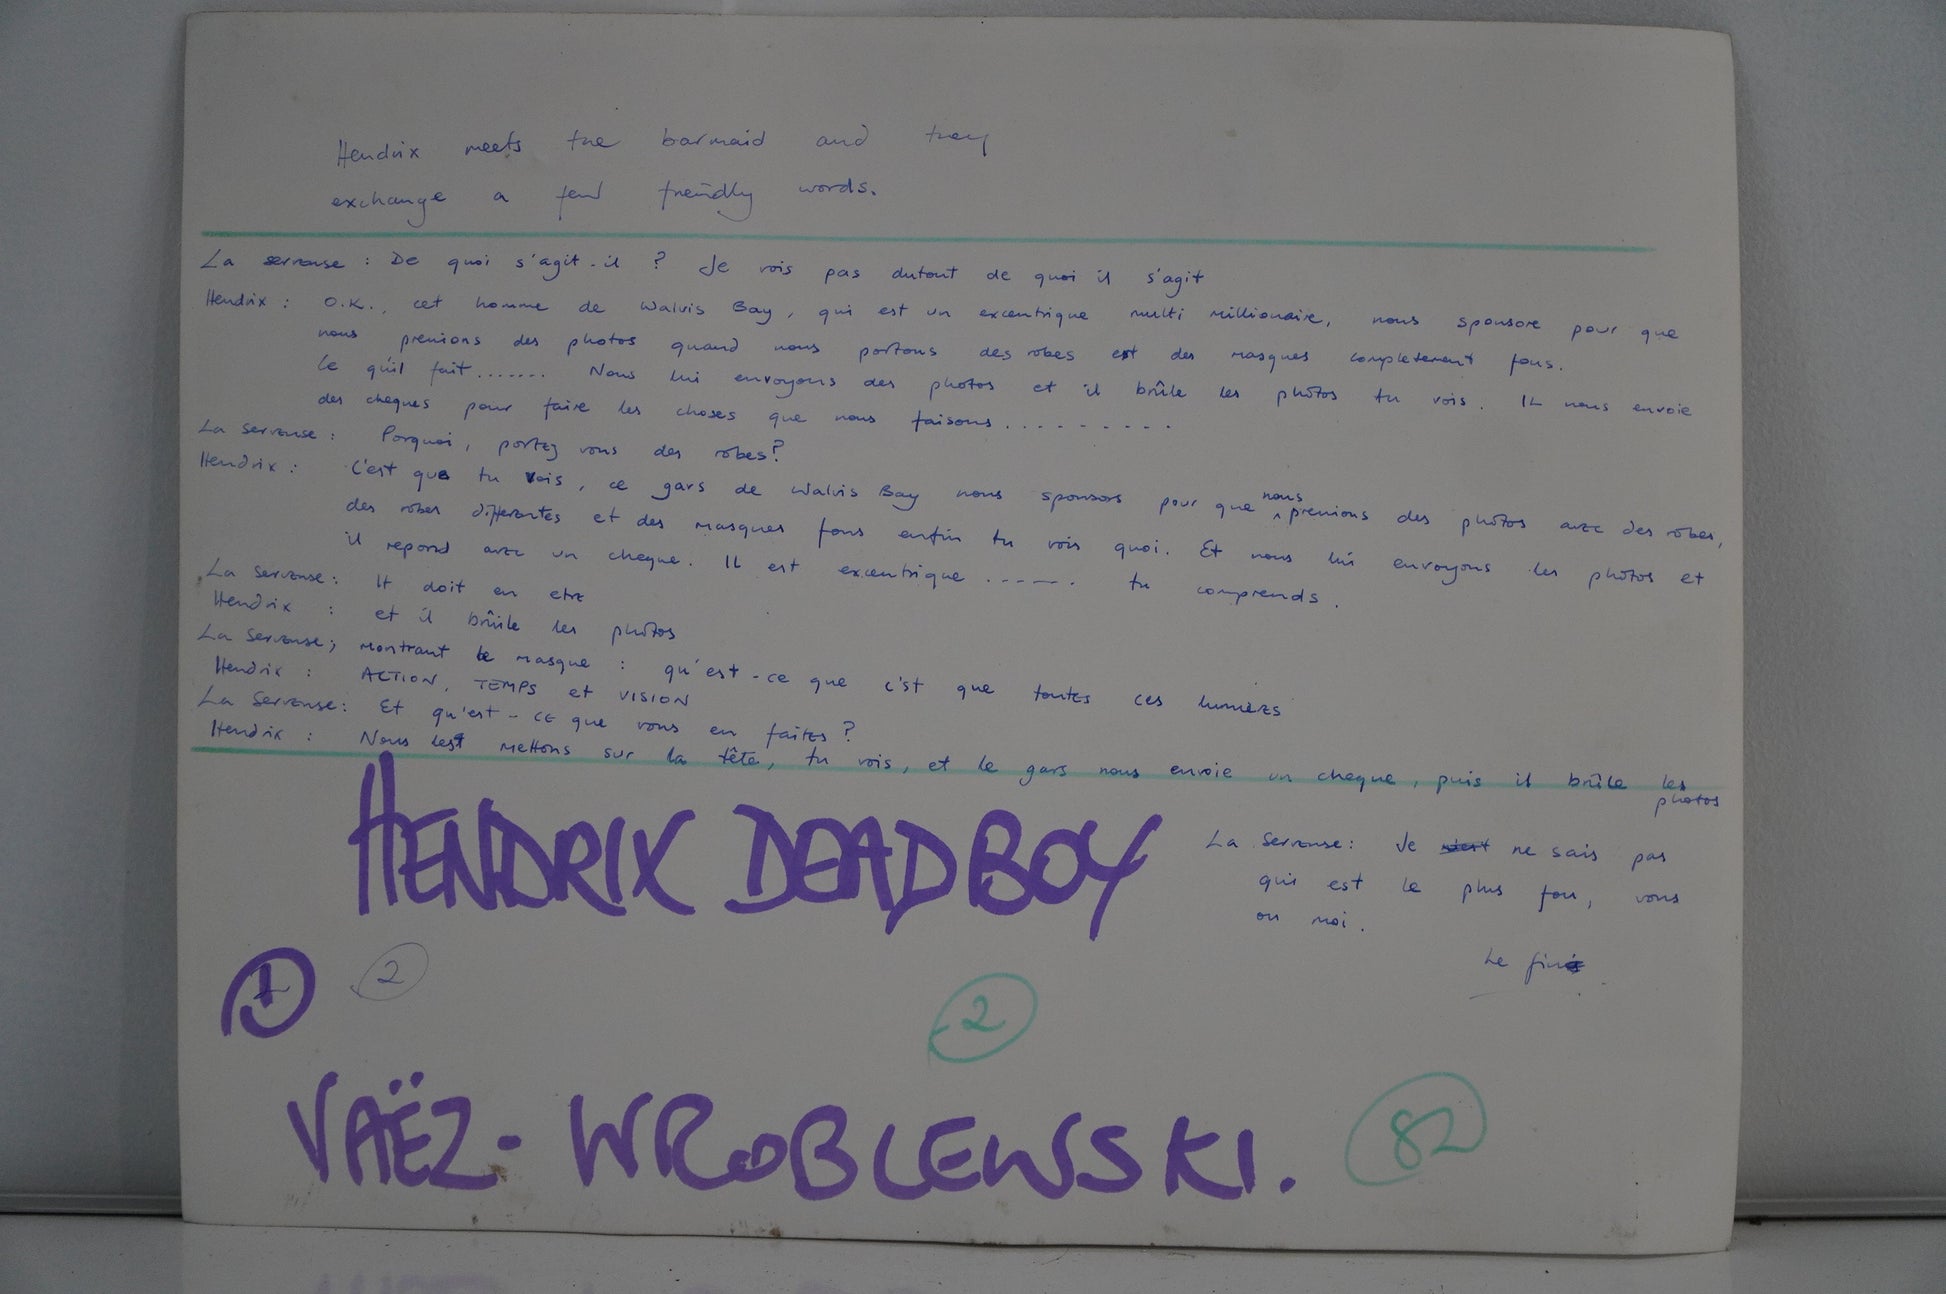 Hendrix meets the barmaid and they
exchange a few freindly words.
La serveuse : De quoi s'agit-il ? Je vois pas dutout de quoi il s'agit
Hendrix : O.K., cet homme de Walvis Bay, qui est un excentrique multi millionaire, nous sponsore pour que
nous prenions des photos quand nous portons des robes et des masques completement fous.
Ce qu'il fait....... Nous lui envoyons des photos et il brûle les photos tu vois. IL nous envoie
des cheques pour faire les choses que nous faisons..........
La serveuse : Porquoi, portez vous des robes?
Hendrix : C'est que tu vois, ce gars de Walvis Bay nous sponsors pour que nous prenions des photos avec des robes,
des robes differentes et des masques fous enfin tu vois quoi. Et nous lui envoyons les photos et
il repond avec un cheque. IL est excentrique ...... tu comprends.
La serveuse : Il doit en etre
Hendrix : et il brûle les photos
La serveuse, montrant le masque : qu'est-ce que c'st que toutes ces lumieres
Hendrix : ACTION, TEMPS et VISION
La serveuse : Et qu'est-ce que vous en faites ?
Hendrix : Nous les mettons sur la tête, tu vois, et le gars nous envoie un cheque, puis il brûle les
photos
HENDRIX DEADBOY
La serveuse : Je ne sais pas
qui est le plus fou, vous
ou moi.
Le fin
1 2
2
VAËZ- WROBLEWSKI.
82